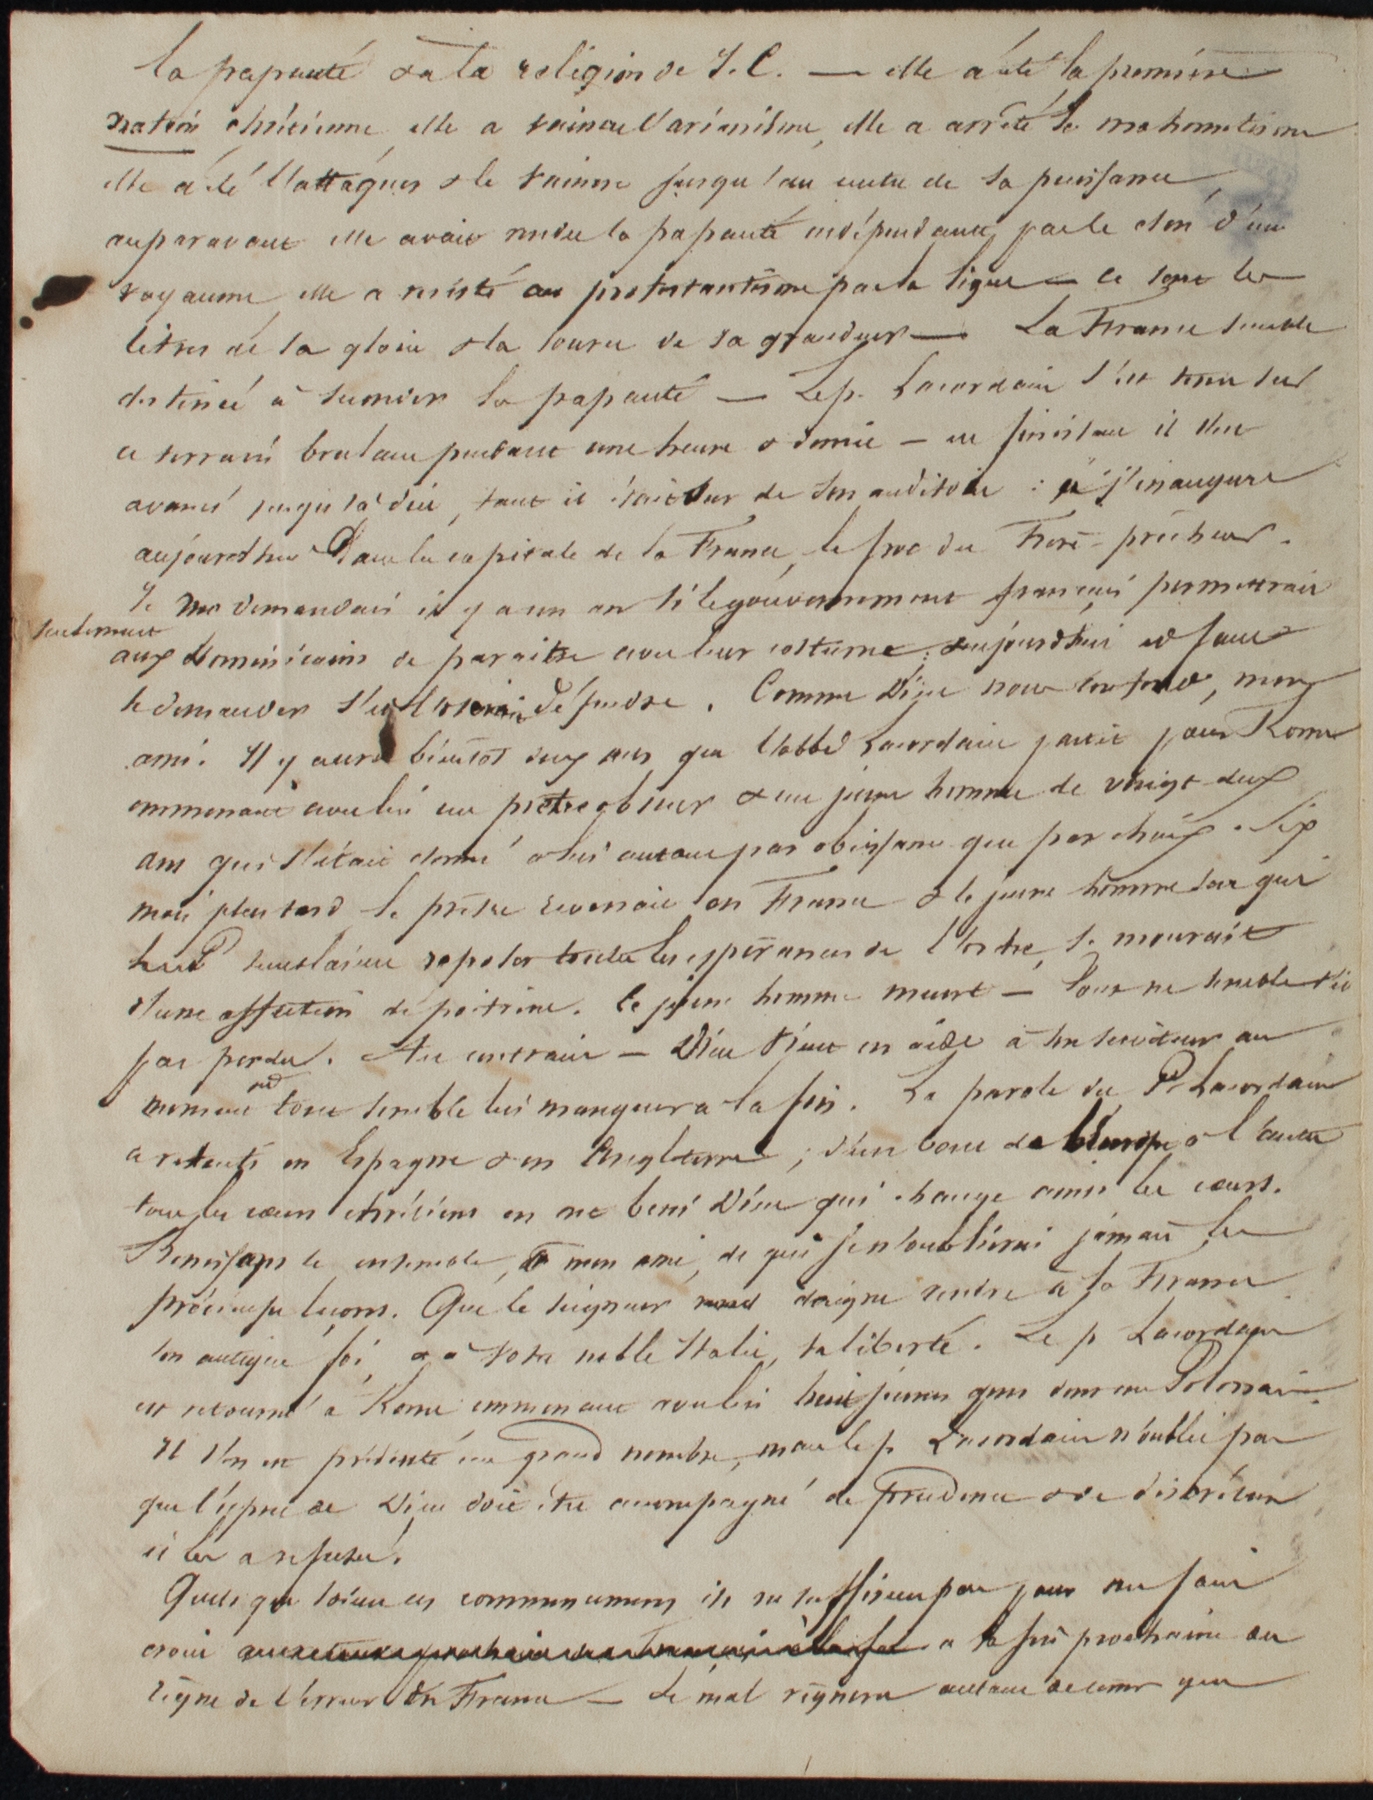 la papauté & à la religion de J. C. — elle a été la première
nation chrétienne, elle a vaincu l'arianisme, elle a arrêté le mahometisme
elle a été l'attaquer & le vaincre jusqu'au centre de sa puissance,
auparavant elle avait rendu la papauté indépendante, par le don d'un
royaume, elle a resisté au protestantisme par la ligue — ce sont les
titres de sa gloire & la source de sa grandeur — La France semble
destinée à sauver la papauté — Le p. Lacordaire s'est tenu sur
ce terrain brulant pendant une heure & demie — en finissant il s'est
avancé jusqu'à dire, tant il était sur de son auditoire : j'inaugure
aujourd'hui Dans la capitale de la France, le froc du Frère-prêcheur.
Je me demandais il y a un an si le gouvernement français permettrait
seulement
aux Dominicains de paraitre avec leur costume : aujourd'hui et sans
le demander défendre. Comme Dieu nous confond, mon
ami. Il y aura bientôt deux ans que l'abbé Lacordaire partit pour Rome
emmenant avec lui un prêtre obscur & un jeune homme de vingt-deux
ans qui s'était donné à lui autant par obeissance que par choix. Six
mois plus tard le prêtre revenait en France & le jeune homme sur qui
seul semblaient reposer toutes les espérances de l'ordre, se mourait
d'une affection de poitrine. Ce jeune homme meurt — tout ne semble t'il
pas perdu. Au contraire — Dieu vient en aide à son serviteur au
moment où tout semble lui manquer à la fois. La parole du P. Lacordaire
a retenti en Espagne & en Angleterre ; d'un bout de l'Europe à l'autre
tous les cœurs chrétiens en ont beni Dieu qui change ainsi les cœurs.
Benissons le ensemble, ô mon ami, de qui je n'oublierai jamais les
précieuses leçons. Que le seigneur daigne rendre à la France
son antique foi, & à votre noble Italie, sa liberté. Le p Lacordaire
est retourné à Rome emmenant avec lui huit jeunes gens dont un Polonais.
Il s'en est présenté un grand nombre, mais le p. Lacordaire n'oublie pas
que l'esprit de Dieu doit être accompagné de prudence & de discrétion
il les a refusés.
Quels que soient ces commencemens ils ne suffisent pas pour me faire
croire à la fin prochaine du
règne de l'erreur en France — Le mal règnera autant de tems que